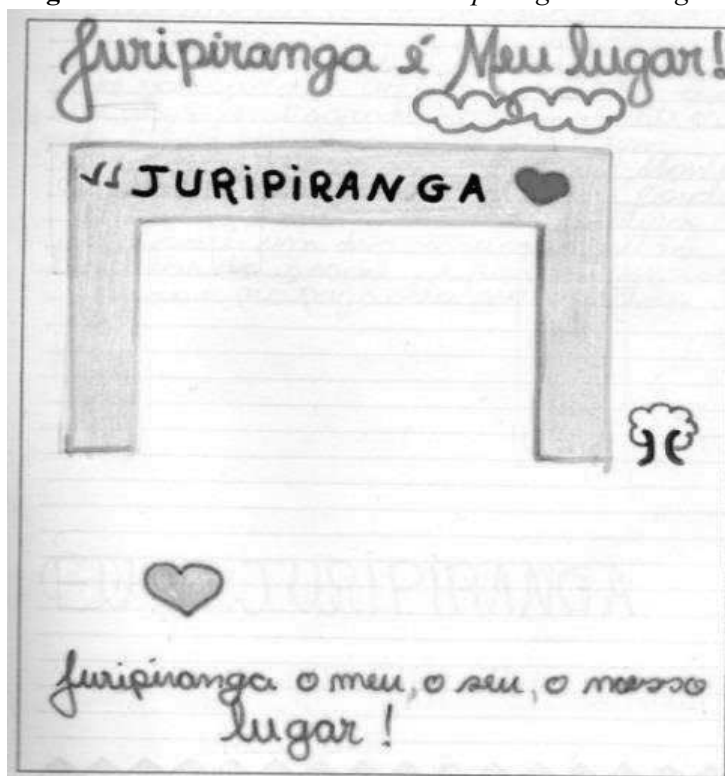 Juripiranga é Meu lugar!
JURiPiRANGA
Juripiranga o meu, o seu, o nosso
lugar!